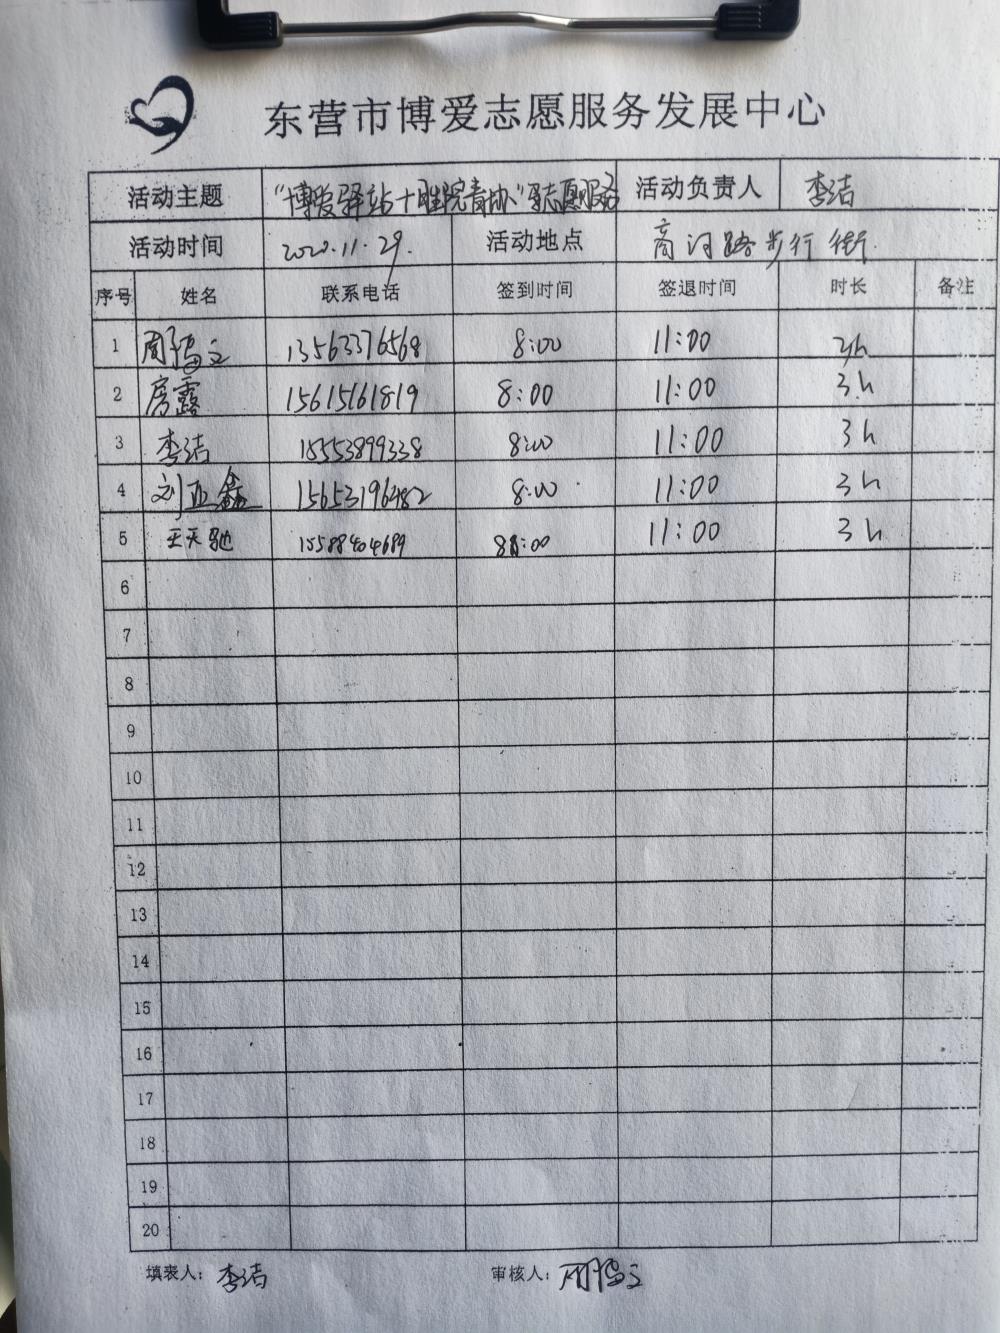 东营市博爱志愿服务发展中心
活动主题 "博爱驿站+胜院青协"志愿服务 活动负责人 李洁
活动时间 2020.11.29. 活动地点 商河路步行街.
序号 姓名 联系电话 签到时间 签退时间 时长 备注
1 13563376568 8:00 11:00 3h
2 房露 15615161819 8:00 11:00 3h
3 李洁 18553899338 8:00 11:00 3h
4 刘亚鑫 15653196482 8:00 11:00 3h
5 王天驰 15588404689 8:00 11:00 3h
6
7
8
9
10
11
12
13
14
15
16
17
18
19
20
填表人：李洁 审核人：